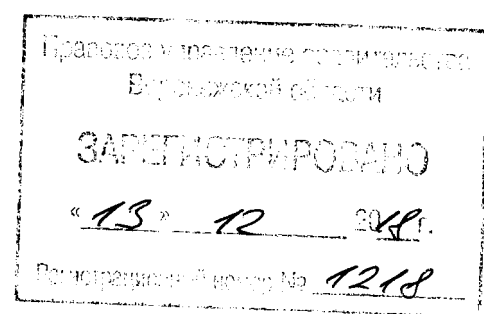 Правовое управление правительства
Воронежской области
ЗАРЕГИСТРИРОВАНО
« 13 » 12 2018 г.
Регистрационный номер № 1218